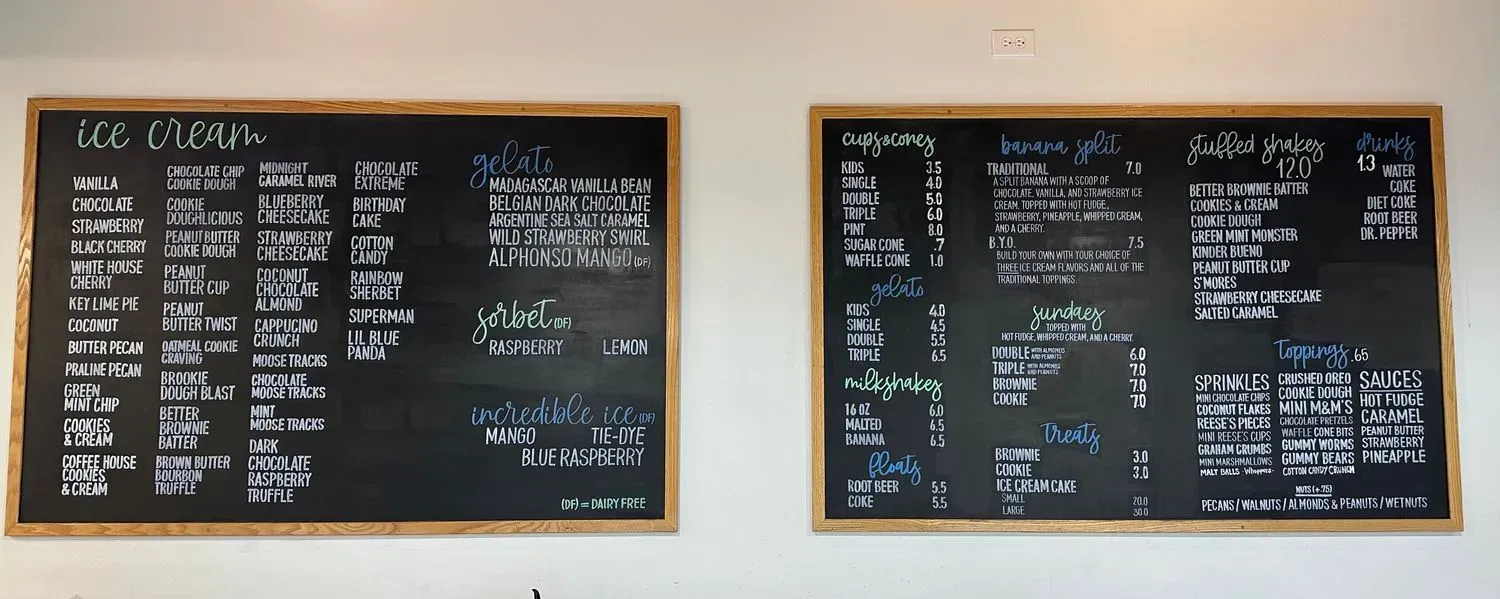 ice cream
VANILLA
CHOCOLATE
STRAWBERRY
BLACK CHERRY
WHITE HOUSE
CHERRY
KEY LIME PIE
COCONUT
BUTTER PECAN
PRALINE PECAN
GREEN
MINT CHIP
COOKIES
& CREAM
COFFEE HOUSE
COOKIES
& CREAM
CHOCOLATE CHIP
COOKIE DOUGH
COOKIE
DOUGHLICIOUS
PEANUT BUTTER
COOKIE DOUGH
PEANUT
BUTTER CUP
PEANUT
BUTTER TWIST
OATMEAL COOKIE
CRAVING
BROOKIE
DOUGH BLAST
BETTER
BROWNIE
BATTER
BROWN BUTTER
BOURBON
TRUFFLE
MIDNIGHT
CARAMEL RIVER
BLUEBERRY
CHEESECAKE
STRAWBERRY
CHEESECAKE
COCONUT
CHOCOLATE
ALMOND
CAPPUCINO
CRUNCH
MOOSE TRACKS
CHOCOLATE
MOOSE TRACKS
MINT
MOOSE TRACKS
DARK
CHOCOLATE
RASPBERRY
TRUFFLE
CHOCOLATE
EXTREME
BIRTHDAY
CAKE
COTTON
CANDY
RAINBOW
SHERBET
SUPERMAN
LIL BLUE
PANDA
gelato
MADAGASCAR VANILLA BEAN
BELGIAN DARK CHOCOLATE
ARGENTINE SEA SALT CARAMEL
WILD STRAWBERRY SWIRL
ALPHONSO MANGO (DF)
sorbet (DF)
RASPBERRY LEMON
incredible ice (DF)
MANGO TIE-DYE
BLUE RASPBERRY
(DF) = DAIRY FREE
cups & cones
KIDS 3.5
SINGLE 4.0
DOUBLE 5.0
TRIPLE 6.0
PINT 8.0
SUGAR CONE .7
WAFFLE CONE 1.0
gelato
KIDS 4.0
SINGLE 4.5
DOUBLE 5.5
TRIPLE 6.5
milkshakes
16 OZ 6.0
MALTED 6.5
BANANA 6.5
floats
ROOT BEER 5.5
COKE 5.5
banana split
TRADITIONAL 7.0
A SPLIT BANANA WITH A SCOOP OF
CHOCOLATE, VANILLA, AND STRAWBERRY ICE
CREAM. TOPPED WITH HOT FUDGE,
STRAWBERRY, PINEAPPLE, WHIPPED CREAM,
AND A CHERRY.
B.Y.O. 7.5
BUILD YOUR OWN WITH YOUR CHOICE OF
THREE ICE CREAM FLAVORS AND ALL OF THE
TRADITIONAL TOPPINGS.
sundaes
TOPPED WITH
HOT FUDGE, WHIPPED CREAM, AND A CHERRY.
DOUBLE WITH ALMONDS AND PEANUTS 6.0
TRIPLE WITH ALMONDS AND PEANUTS 7.0
BROWNIE 7.0
COOKIE 7.0
treats
BROWNIE 3.0
COOKIE 3.0
ICE CREAM CAKE
SMALL 20.0
LARGE 30.0
stuffed shakes
12.0
BETTER BROWNIE BATTER
COOKIES & CREAM
COOKIE DOUGH
GREEN MINT MONSTER
KINDER BUENO
PEANUT BUTTER CUP
S'MORES
STRAWBERRY CHEESECAKE
SALTED CARAMEL
drinks
1.3 WATER
COKE
DIET COKE
ROOT BEER
DR. PEPPER
Toppings .65
SPRINKLES
MINI CHOCOLATE CHIPS
COCONUT FLAKES
REESE'S PIECES
MINI REESE'S CUPS
GRAHAM CRUMBS
MINI MARSHMALLOWS
MALT BALLS -Whoppers-
CRUSHED OREO
COOKIE DOUGH
MINI M&M'S
CHOCOLATE PRETZELS
WAFFLE CONE BITS
GUMMY WORMS
GUMMY BEARS
COTTON CANDY CRUNCH
SAUCES
HOT FUDGE
CARAMEL
PEANUT BUTTER
STRAWBERRY
PINEAPPLE
NUTS (+.75)
PECANS / WALNUTS / ALMONDS & PEANUTS / WETNUTS